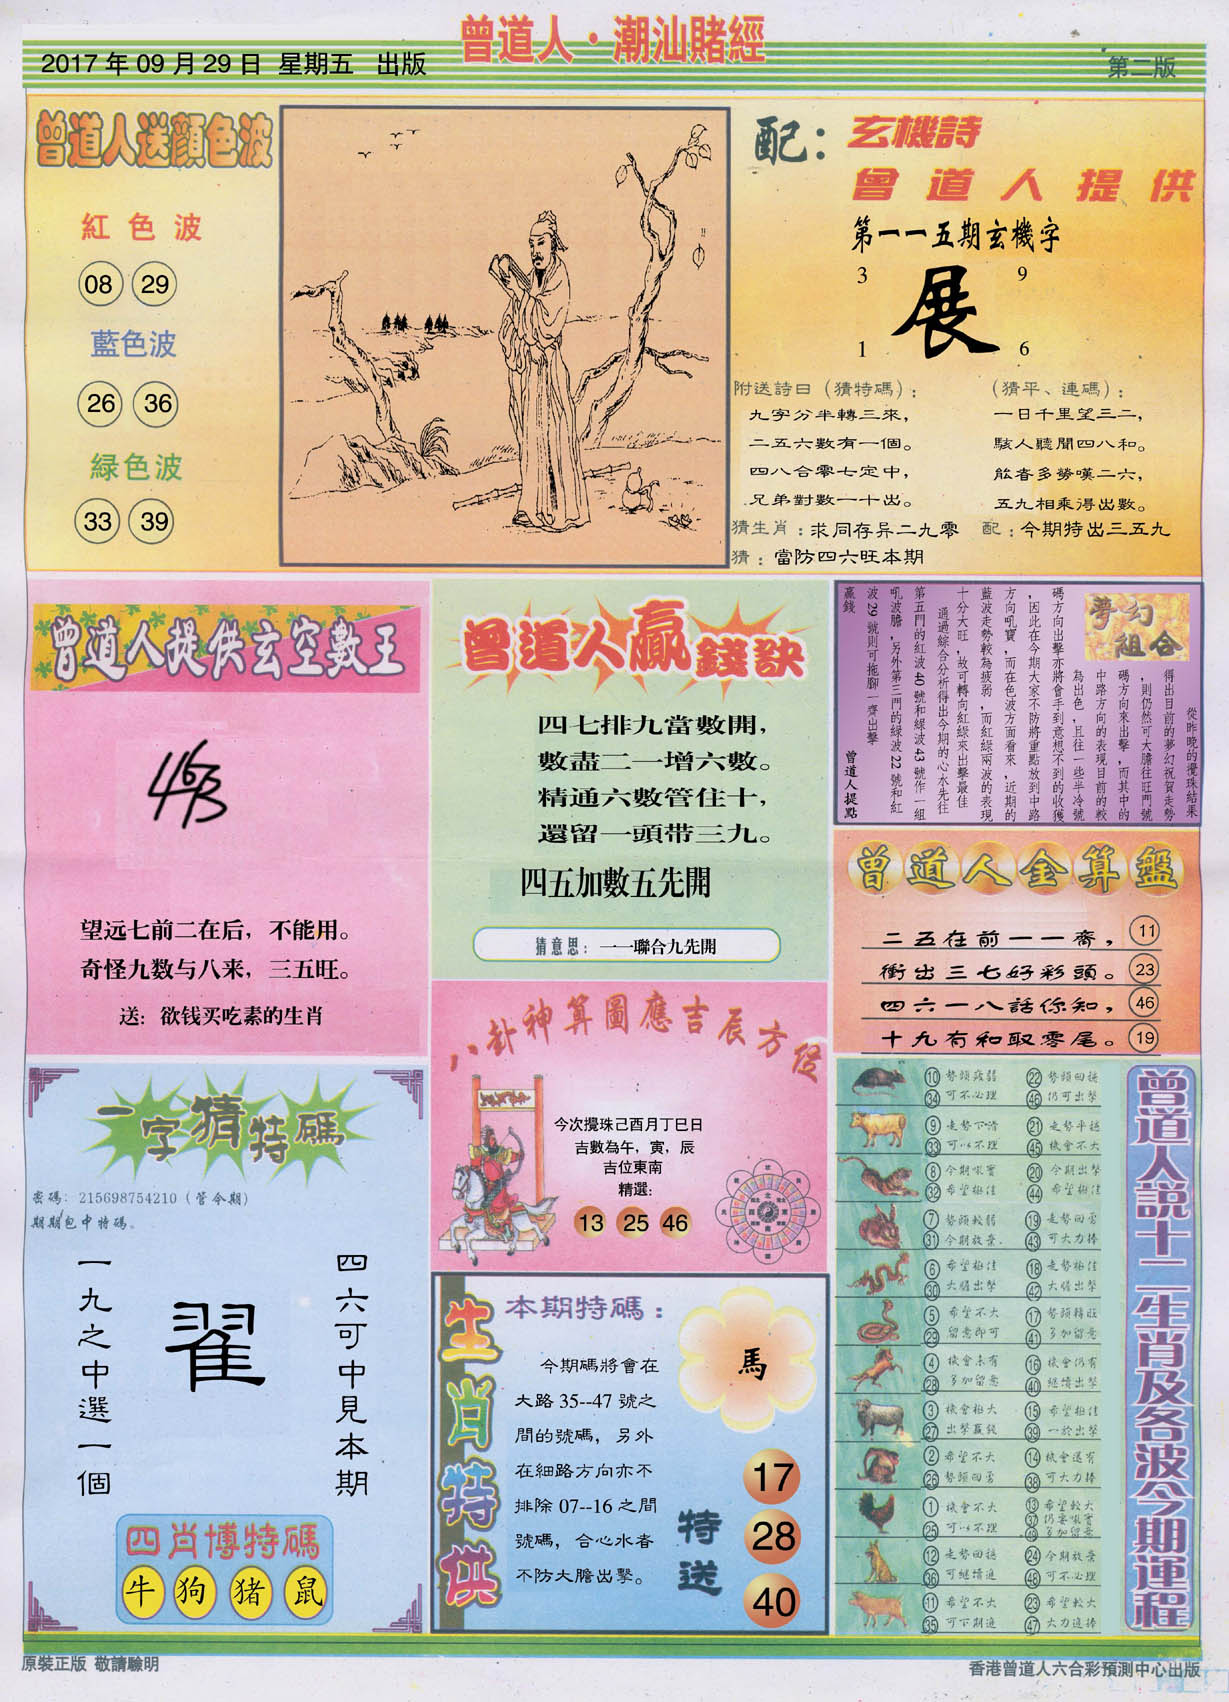 曾道人·潮汕賭經
2017年09月29日 星期五 出版
第二版
曾道人送顏色波
紅色波
08 29
藍色波
26 36
緑色波
33 39
配：玄機詩
曾道人提供
第一一五期玄機字
3 9
展
1 6
附送詩曰（猜特碼）：
九字分半轉三來，
二五六數有一個。
四八合零七定中，
兄弟對數一十出。
（猜平、連碼）：
一日千里望三二，
駭人聽聞四八和。
能者多勞嘆二六，
五九相乘得出數。
猜生肖：求同存异二九零
配：今期特出三五九
猜：當防四六旺本期
曾道人提供玄空數王
463
望远七前二在后，不能用。
奇怪九数与八来，三五旺。
送：欲钱买吃素的生肖
曾道人贏錢訣
四七排九當數開，
數盡二一增六數。
精通六數管住十，
還留一頭带三九。
四五加數五先開
猜意思：一一聯合九先開
夢幻
組合
從昨晚的攪珠結果
得出目前的夢幻祝賀走勢
，則仍然可大膽往旺門號
碼方向來出擊，而其中的
中路方向的表現目前的較
為出色，且往一些半冷號
碼方向出擊亦將會手到意想不到的收獲
，因此在今期大家不防將重點放到中路
方向吼寶，而在色波方面看來，近期的
藍波走勢較為疲弱，而紅綠兩波的表現
十分大旺，故可轉向紅綠來出擊最佳
通過綜合分析得出今期的心水先往
第五門的紅波40號和綠波43號作一組
吼波膽，另外第三門的綠波22號和紅
波29號則可拖腳一齊出擊
贏錢
曾道人提點
曾道人金算盤
二五在前一一齊， 11
衝出三七好彩頭。 23
四六一八話你知， 46
十九有和取零尾。 19
八卦神算圖應吉辰方位
今次攪珠己酉月丁巳日
吉數為午，寅，辰
吉位東南
精選：
13 25 46
一字猜特碼
密碼：215698754210（管今期）
期期包中特碼。
四六可中見本期
翟
一九之中選一個
四肖博特碼
牛 狗 猪 鼠
生肖特供
本期特碼：
今期碼將會在
大路35--47號之
間的號碼，另外
在細路方向亦不
排除07--16之間
號碼，合心水者
不防大膽出擊。
馬
特送
17
28
40
曾道人説十二生肖及各波今期運程
10 34 勢頭疲弱 可不必理 22 46 勢頭回穩 仍可出擊
9 33 走勢下滑 可以不理 21 45 走勢平穩 機會不大
8 32 今期吼寶 希望極佳 20 44 今期出擊 希望極佳
7 31 勢頭較弱 今期放棄. 19 43 走勢回勇 可大力捧
6 30 希望極佳 大膽出擊 18 42 走勢極佳 大膽出擊
5 29 希望不大 留意即可 17 41 勢頭轉旺 多加留意
4 28 機會未有 多加留意 16 40 機會仍有 繼續出擊
3 27 機會極大 出擊贏錢 15 39 希望極佳 一於出擊
2 26 希望不大 勢頭回勇 14 38 機會還有 可大力捧
1 25 機會不大 可以不理 13 37 49 希望較大 仍要吼寶 多加留意
12 36 走勢回穩 可繼續追 24 48 今期放棄 可不必理
11 35 希望不大 可下期追 23 47 希望較大 大力追捧
原裝正版 敬請驗明
香港曾道人六合彩預測中心出版